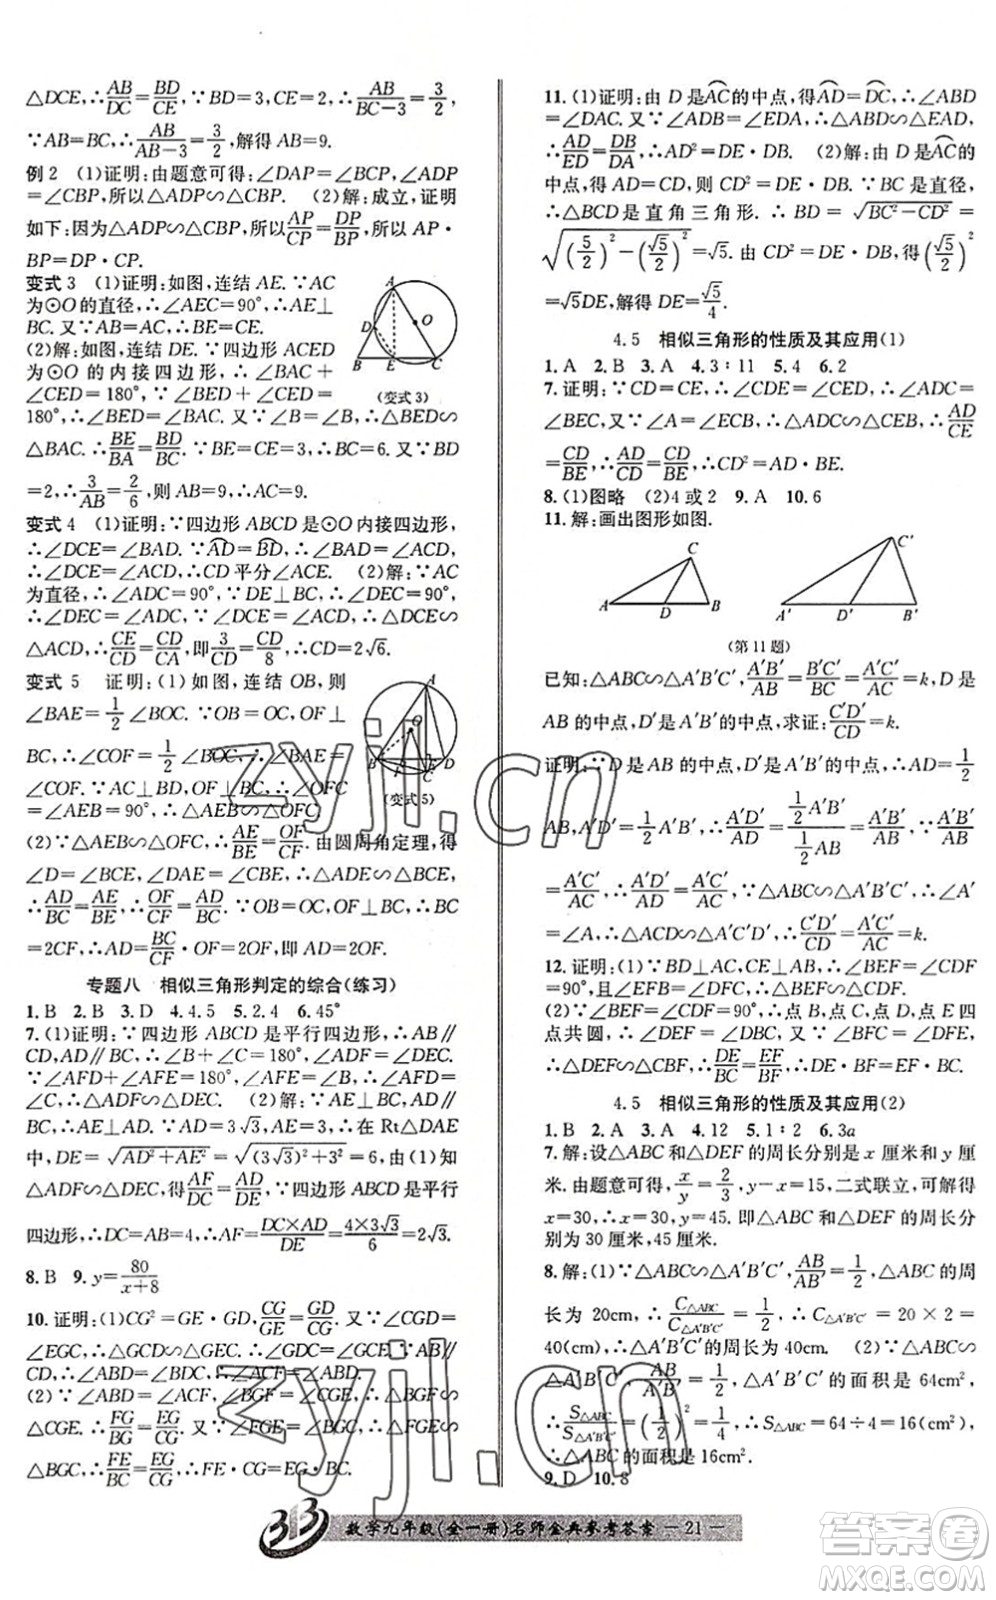 △DCE,∴AB/DC=BD/CE.∵BD=3,CE=2,∴AB/(BC-3)=3/2,
∵AB=BC,∴AB/(AB-3)=3/2,解得 AB=9.
例 2 (1)证明:由题意可得:∠DAP=∠BCP,∠ADP
=∠CBP,所以△ADP∽△CBP. (2)解:成立,证明
如下:因为△ADP∽△CBP,所以AP/CP=DP/BP,所以 AP·
BP=DP·CP.
变式 3 (1)证明:如图,连结 AE. ∵AC
为⊙O 的直径,∴∠AEC=90°,∴AE⊥
BC. 又∵AB=AC,∴BE=CE.
(2)解:如图,连结 DE. ∵四边形 ACED
为⊙O 的内接四边形,∴∠BAC+
∠CED=180°. ∵∠BED+∠CED=
180°,∴∠BED=∠BAC.
又∵∠B=∠B,∴△BED∽
△BAC. ∴BE/BA=BD/BC. ∵BE=CE=3,∴BC=6. 又∵BD
=2,∴3/AB=2/6,则 AB=9,∴AC=9.
A
D
O
B
E
C
(变式 3)
变式 4 (1)证明:∵四边形 ABCD 是⊙O 内接四边形,
∴∠DCE=∠BAD. ∵AD=BD,∴∠BAD=∠ACD,
∴∠DCE=∠ACD,∴CD 平分∠ACE. (2)解:∵AC
为直径,∴∠ADC=90°,∵DE⊥BC,∴∠DEC=90°,
∴∠DEC=∠ADC,∵∠DCE=∠ACD,∴△DCE∽
△ACD,∴CE/CD=CD/CA,即3/CD=CD/8,∴CD=2√6.
变式 5 证明:(1)如图,连结 OB,则
∠BAE=1/2∠BOC. ∵OB=OC,OF⊥
BC,∴∠COF=1/2∠BOC,∴∠BAE=
∠COF. ∵AC⊥BD,OF⊥BC,∴∠OFC
=∠AEB=90°,∴△AEB∽△OFC.
(变式 5)
(2)∵△AEB∽△OFC,∴AE/BE=OF/CF. 由圆周角定理,得
∠D=∠BCE,∠DAE=∠CBE,∴△ADE∽△BCE.
∴AD/BC=AE/BE,∴OF/CF=AD/BC. ∵OB=OC,OF⊥BC,∴BC
=2CF,∴AD=BC/CF·OF=2OF,即 AD=2OF.
专题八 相似三角形判定的综合(练习)
1. B 2. B 3. D 4. 4.5 5. 2.4 6. 45°
7. (1)证明:∵四边形 ABCD 是平行四边形,∴AB∥
CD,AD∥BC,∴∠B+∠C=180°,∠ADF=∠DEC.
∵∠AFD+∠AFE=180°,∠AFE=∠B,∴∠AFD=
∠C,∴△ADF∽△DEC. (2)解:∵AE⊥BC,AD∥
BC,∴AE⊥AD. ∵AD=3√3,AE=3,∴在 Rt△DAE
中,DE=√(AD²+AE²)=√((3√3)²+3²)=6. 由(1)知
△ADF∽△DEC,得AF/DC=AD/DE. ∵四边形 ABCD 是平行
四边形,∴DC=AB=4,∴AF=(DC×AD)/DE=(4×3√3)/6=2√3.
8. B 9. y=80/(x+8)
10. 证明:(1)CG²=GE·GD,CG/GE=GD/CG. 又∵∠CGD=
∠EGC,∴△GCD∽△GEC. ∴∠GDC=∠GCE. ∵AB∥
CD,∴∠ABD=∠BDC. ∴∠ACF=∠ABD.
(2)∵∠ABD=∠ACF,∠BGF=∠CGE,∴△BGF∽
△CGE. ∴FG/BG=EG/CG. 又∵∠FGE=∠BGC,∴△FGE∽
△BGC,∴FE/BC=FG/BG,∴FE·CG=EG·BC.
11. (1)证明:由 D 是AC的中点,得AD=DC,∴∠ABD
=∠DAC. 又∵∠ADB=∠EDA,∴△ABD∽△EAD,
∴AD/ED=BD/DA,∴AD²=DE·DB. (2)解:由 D 是AC的
中点,得 AD=CD,则 CD²=DE·DB. ∵BC 是直径,
∴△BCD 是直角三角形. ∴BD=√(BC²-CD²)=
√((5/2)²-(√5/2)²)=√5. 由 CD²=DE·DB,得(√5/2)²
=√5DE,解得 DE=√5/4.
4.5 相似三角形的性质及其应用(1)
1. A 2. B 3. A 4. 3∶11 5. 4 6. 2
7. 证明:∵CD=CE,∴∠CDE=∠CED,∴∠ADC=
∠BEC,又∵∠A=∠ECB,∴△ADC∽△CEB,∴AD/CE
=CD/BE,∴AD/CD=CD/BE,∴CD²=AD·BE.
8. (1)图略 (2)4 或 2 9. A 10. 6
11. 解:画出图形如图.
C
A
D
B
C′
A′
D′
B′
(第 11 题)
已知:△ABC∽△A′B′C′,A′B′/AB=A′C′/AC=B′C′/BC=k,D 是
AB 的中点,D′是 A′B′的中点,求证:C′D′/CD=k.
证明:∵D 是 AB 的中点,D′是 A′B′的中点,∴AD=1/2
AB,A′D′=1/2A′B′,∴A′D′/AD=(1/2A′B′)/(1/2AB)=A′B′/AB,∴A′B′/AB
=A′C′/AC,∴A′D′/AD=A′C′/AC,∵△ABC∽△A′B′C′,∴∠A′
=∠A,∴△A′C′D′∽△ACD,∴C′D′/CD=A′C′/AC=k.
12. 证明:(1)∵∠BEF=∠CDF=90°,∠BFE=∠CFD,
∴△EFB∽△DFC,∴EF/DF=FB/FC,∴EF·FC=FB·DF.
(2)∵∠BEF=∠CDF=90°,∴点 B,点 C,点 D,点 E 四
点共圆,∴∠DEF=∠DBC. 又∵∠BFC=∠DFE,
∴△DEF∽△CBF,∴DE/BC=EF/BF,∴DE·BF=BC·EF.
4.5 相似三角形的性质及其应用(2)
1. B 2. A 3. A 4. 12 5. 1∶2 6. 3a
7. 解:设△ABC 和△DEF 的周长分别是 x 厘米和 y 厘
米. 由题意可得,x/y=2/3,y-x=15,二式联立,可解得
x=30,y=45. 即△ABC 和△DEF 的周长分
别为 30 厘米,45 厘米.
8. 解:(1)∵△ABC∽△A′B′C′,AB/A′B′=1/2,△ABC 的周
长为 20cm,∴C△ABC/C△A′B′C′=1/2,∴C△A′B′C′=20×2=
40(cm),∴△A′B′C′的周长为 40cm. (2)∵△ABC∽
△A′B′C′,AB/A′B′=1/2,△A′B′C′的面积是 64cm²,
∴S△ABC/S△A′B′C′=(1/2)²=1/4,∴S△ABC=64÷4=16(cm²),
∴△ABC 的面积是 16cm².
9. D 10. 8
数学九年级(全一册)名师金典参考答案 —21—
zyjl.cn
zyjl.cn
答案圈
MXQE.COM